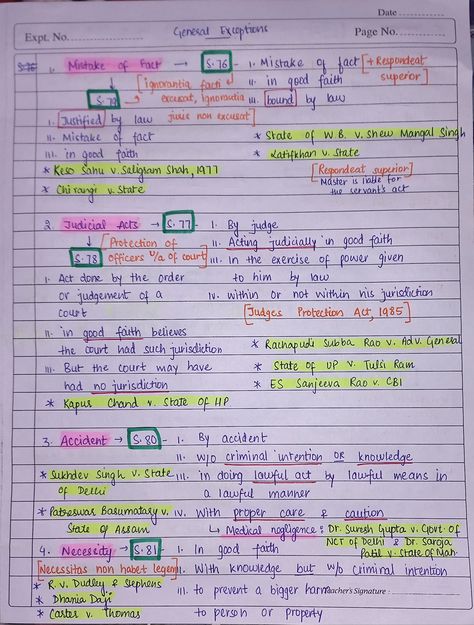 Date
Expt. No.
General Exceptions
Page No.
1. Mistake of Fact → S.76 - i. Mistake of fact [+ Respondeat superior]
ii. in good faith
iii. bound by law
S.79 → [ignorantia facti excusat, ignorantia juris non excusat]
i. Justified by law
ii. Mistake of fact
iii. in good faith
* Keso Sahu v. Saligram Shah, 1977
* Chirangi v. State
* State of W.B. v. Shew Mangal Singh
* Latifkhan v. State
[Respondeat superior]
Master is liable for
the servant's act
2. Judicial Acts → S.77 - i. By judge
ii. Acting judicially in good faith
iii. In the exercise of power given
to him by law
iv. within or not within his jurisdiction
[Judges Protection Act, 1985]
S.78 [Protection of
officers u/a of court]
i. Act done by the order
or judgement of a
court
ii. in good faith believes
the court had such jurisdiction
iii. But the court may have
had no jurisdiction
* Kapur Chand v. State of HP
* Rachapudi Subba Rao v. Adv. General
* State of UP v. Tulsi Ram
* ES Sanjeeva Rao v. CBI
3. Accident → S.80 - i. By accident
ii. w/o criminal intention OR knowledge
iii. in doing lawful act by lawful means in
a lawful manner
iv. With proper care & caution
↳ Medical negligence : Dr. Suresh Gupta v. Govt. of
NCT of Delhi & Dr. Saroja
Patil v. State of Mah.
* Sukhdev Singh v. State
of Delhi
* Patreswar Basumatary v.
State of Assam
4. Necessity → S.81 - i. In good faith
[Necessitas non habet legem]
ii. With knowledge but w/o criminal intention
iii. to prevent a bigger harm
to person or property
* R v. Dudley & Stephens
* Dhania Daji
* Carter v. Thomas
Teacher's Signature :